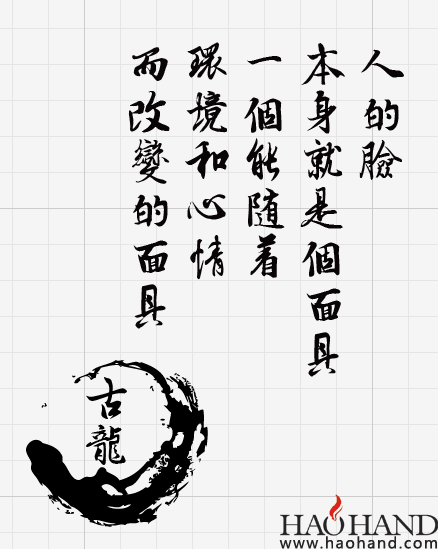 人的臉
本身就是個面具
一個能随着
環境和心情
而改變的面具
古龍
HAOHAND
www.haohand.com